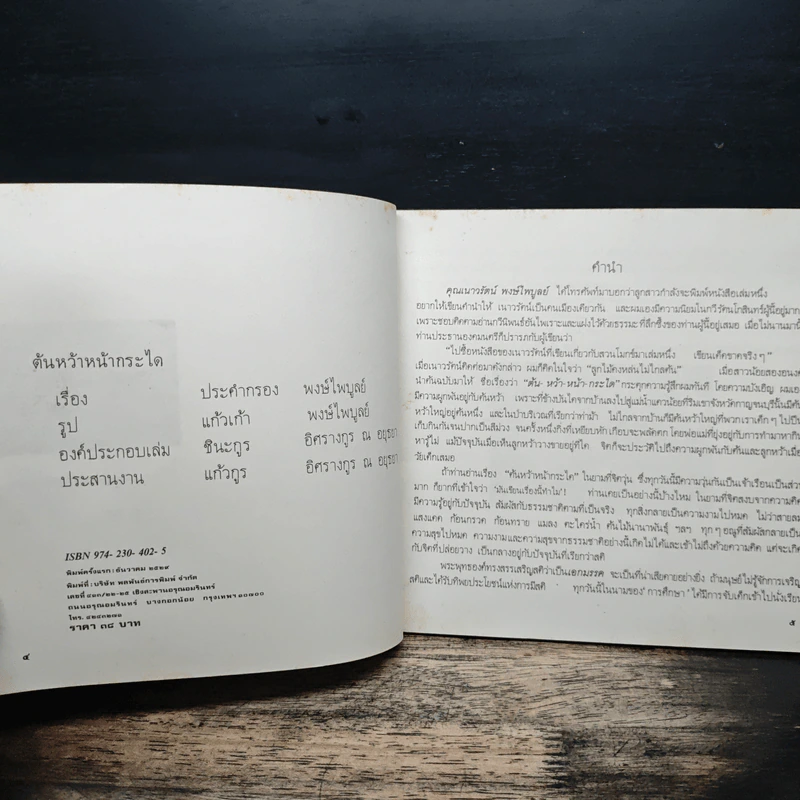 ต้นหว้าหน้ากระได
เรื่อง ประคำกรอง พงษ์ไพบูลย์
รูป แก้วเก้า พงษ์ไพบูลย์
องค์ประกอบเล่ม ชินะกูร อิศรางกูร ณ อยุธยา
ประสานงาน แก้วกูร อิศรางกูร ณ อยุธยา
ISBN 974-230-402-5
พิมพ์ครั้งแรก: ธันวาคม ๒๕๒๙
พิมพ์ที่: บริษัท พตพันธ์การพิมพ์ จำกัด
เลขที่ ๔๑๓/๒๒-๒๕ เชิงสะพานอรุณอมรินทร์
ถนนอรุณอมรินทร์ บางกอกน้อย กรุงเทพฯ ๑๐๗๐๐
โทร. ๔๒๔๓๒๗๑
ราคา ๓๘ บาท
๔
คำนำ
คุณเนาวรัตน์ พงษ์ไพบูลย์ ได้โทรศัพท์มาบอกว่าลูกสาวกำลังจะพิมพ์หนังสือเล่มหนึ่ง
อยากให้เขียนคำนำให้ เนาวรัตน์เป็นคนเมืองเดียวกัน และผมเองมีความนิยมในกวีรัตนโกสินทร์ผู้นี้อยู่มาก
เพราะชอบติดตามอ่านกวีนิพนธ์อันไพเราะและแฝงไว้ด้วยธรรมะที่ลึกซึ้งของท่านผู้นี้อยู่เสมอ เมื่อไม่นานมานี้
ท่านประธานองคมนตรีก็ปรารภกับผู้เขียนว่า
"ไปซื้อหนังสือของเนาวรัตน์ที่เขียนเกี่ยวกับสวนโมกข์มาเล่มหนึ่ง เขียนเด็ดขาดจริงๆ"
เมื่อเนาวรัตน์ติดต่อมาดังกล่าว ผมก็คิดในใจว่า "ลูกไม้ต้องหล่นไม่ไกลต้น" เมื่อสาวน้อยสองอนงค์
ต้นฉบับมาให้ ชื่อเรื่องว่า "ต้น-หว้า-หน้า-กระได" กระตุกความรู้สึกผมทันที โดยความบังเอิญ ผมเอง
มีความผูกพันอยู่กับต้นหว้า เพราะที่ข้างบันไดจากบ้านลงไปสู่แม่น้ำแควน้อยที่ริมเขาจังหวัดกาญจนบุรีนั้นมีต้น
หว้าใหญ่อยู่ต้นหนึ่ง และในป่าบริเวณที่เรียกว่าท่าม้า ไม่ไกลจากบ้านก็มีต้นหว้าใหญ่ที่พวกเราเด็กๆ ไปปีน
เก็บกินกันจนปากเป็นสีม่วง จนครั้งหนึ่งกิ่งที่เหยียบหัก เกือบจะพลัดตก โดยพ่อแม่ที่ยุ่งอยู่กับการทำมาหากิน
หารู้ไม่ แม้ปัจจุบันเมื่อเห็นลูกหว้าวางขายอยู่ที่ใด จิตก็จะประวัติไปถึงความผูกพันกับต้นและลูกหว้าเมื่อ
วัยเด็กเสมอ
ถ้าท่านอ่านเรื่อง "ต้นหว้าหน้ากระได" ในยามที่จิตวุ่น ซึ่งทุกวันนี้ความวุ่นกันเป็นเจ้าเรือนเป็นส่วน
มาก ก็ยากที่เข้าใจว่า 'มันเขียนเรื่องนี้ทำไม'! ท่านเคยเป็นอย่างนี้บ้างไหม ในยามที่จิตสงบจากความคิด
มีความรู้อยู่กับปัจจุบัน สัมผัสกับธรรมชาติตามที่เป็นจริง ทุกสิ่งกลายเป็นความงามไปหมด ไม่ว่าสายลม
แสงแดด ก้อนกรวด ก้อนทราย แมลง ตะไคร่น้ำ ต้นไม้นานาพันธุ์ ฯลฯ ทุกๆ อณูที่สัมผัสกลายเป็น
ความสุขไปหมด ความงามและความสุขจากธรรมชาติอย่างนี้เกิดไม่ได้และเข้าไม่ถึงด้วยความคิด แต่จะเกิด
กับจิตที่ปล่อยวาง เป็นกลางอยู่กับปัจจุบันที่เรียกว่าสติ
พระพุทธองค์ทรงสรรเสริญสติว่าเป็นเอกมรรค จะเป็นที่น่าเสียดายอย่างยิ่ง ถ้ามนุษย์ไม่รู้จักการเจริญ
สติและได้รับทิพยประโยชน์แห่งการมีสติ ทุกวันนี้ในนามของ 'การศึกษา' ได้มีการจับเด็กเข้าไปนั่งเรียน
๕